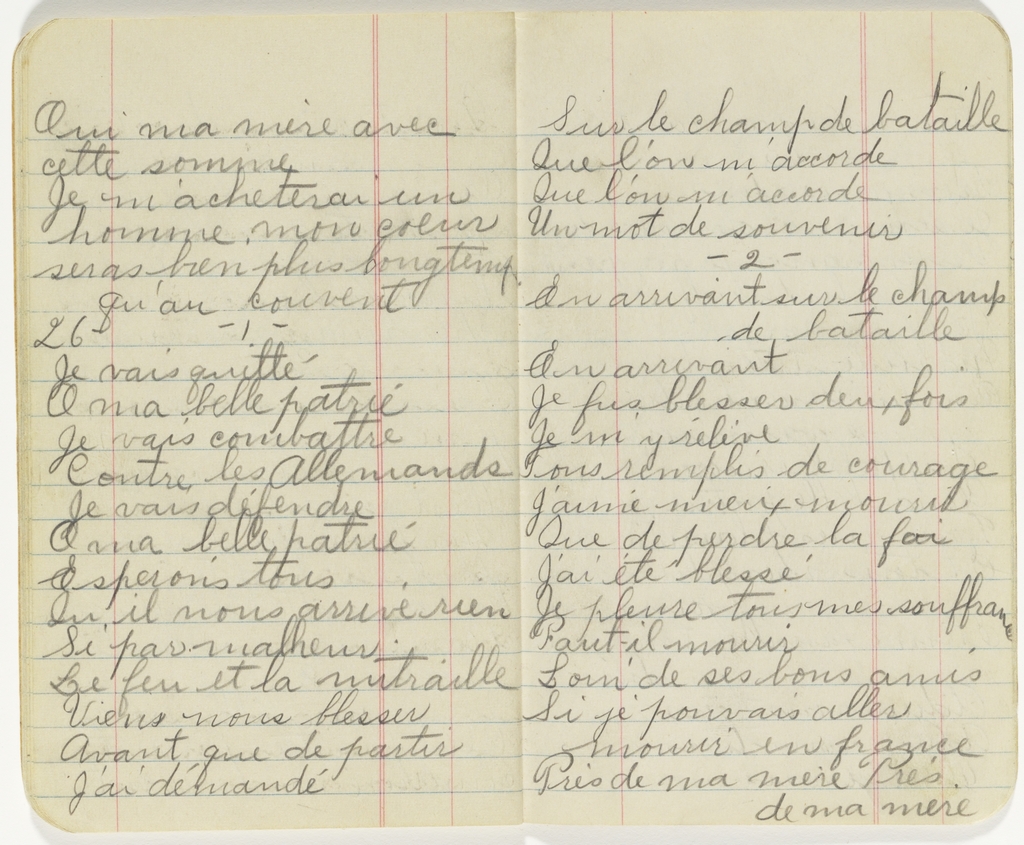 Oui ma mère avec
cette somme
Je m'acheterai un
homme, mon coeur
seras bien plus longtemp
qu'au couvent
26 - 1 -
Je vais quitté
O ma belle patrié
Je vais combattre
Contre les Allemands
Je vais défendre
O ma belle patrié
Esperons tous
Qu'il nous arrive rien
Si par malheur
Le feu et la mitraille
Viens nous blesser
Avant que de partir
J'ai démandé
Sur le champ de bataille
Que l'on m'accorde
Que l'on m'accorde
Un mot de souvenir
- 2 -
En arrivant sur le champ
de bataille
En arrivant
Je fus blesser deux fois
Je m'y rélève
Tous remplis de courage
J'aime mieux mourir
Que de perdre la foi
J'ai été blessé
Je pleure tous mes souffrance
Faut-il mourir
Loin de ses bons amis
Si je pouvais aller
mourir en france
Près de ma mère Près
de ma mère